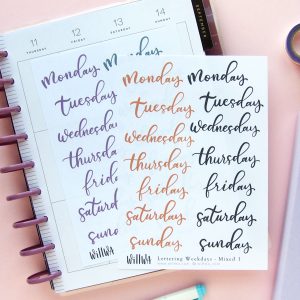 11 12 13 14
THURSDAY
SEPTEMBER
monday monday monday
tuesday tuesday tuesday
wednesday wednesday wednesday
thursday thursday thursday
friday friday friday
saturday saturday saturday
sunday sunday sunday
willwa willwa
Lettering Weekdays - Mixed 1